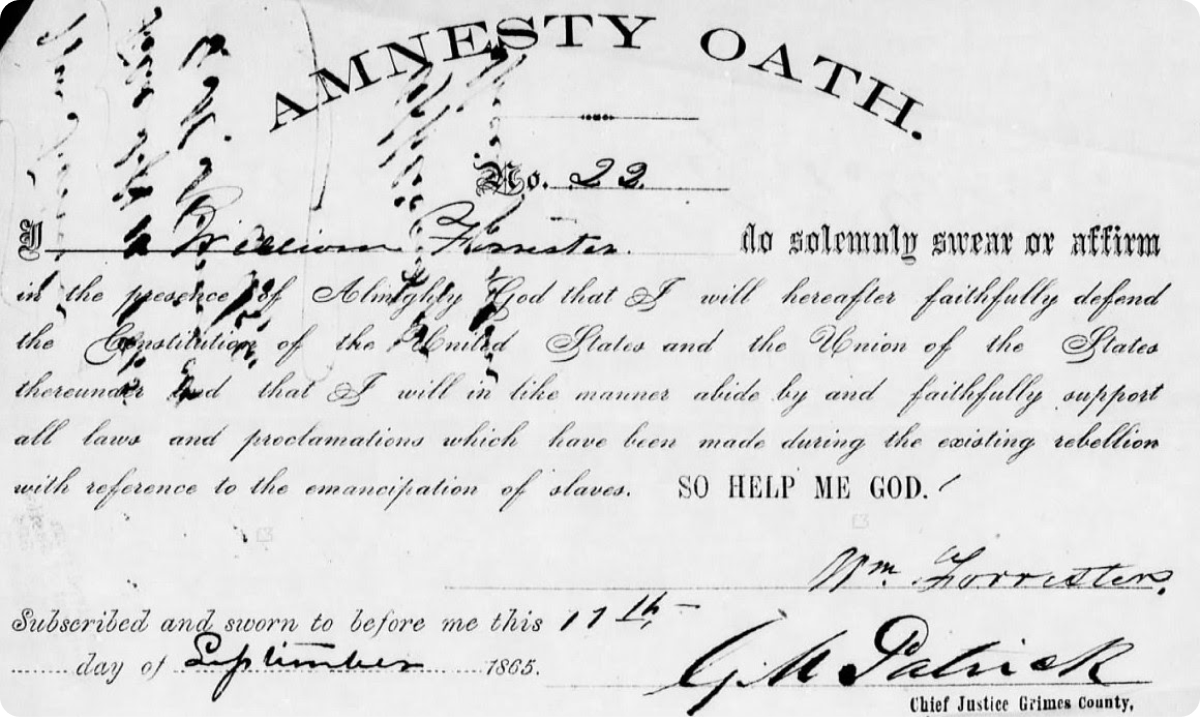 AMNESTY OATH.
No. 22.
I William Forrester. do solemnly swear or affirm
in the presence of Almighty God that I will hereafter faithfully defend
the Constitution of the United States and the Union of the States
thereunder and that I will in like manner abide by and faithfully support
all laws and proclamations which have been made during the existing rebellion
with reference to the emancipation of slaves. SO HELP ME GOD.
Wm. Forrester.
Subscribed and sworn to before me this 11th
day of September 1865.
G. M. Patrick
Chief Justice Grimes County,